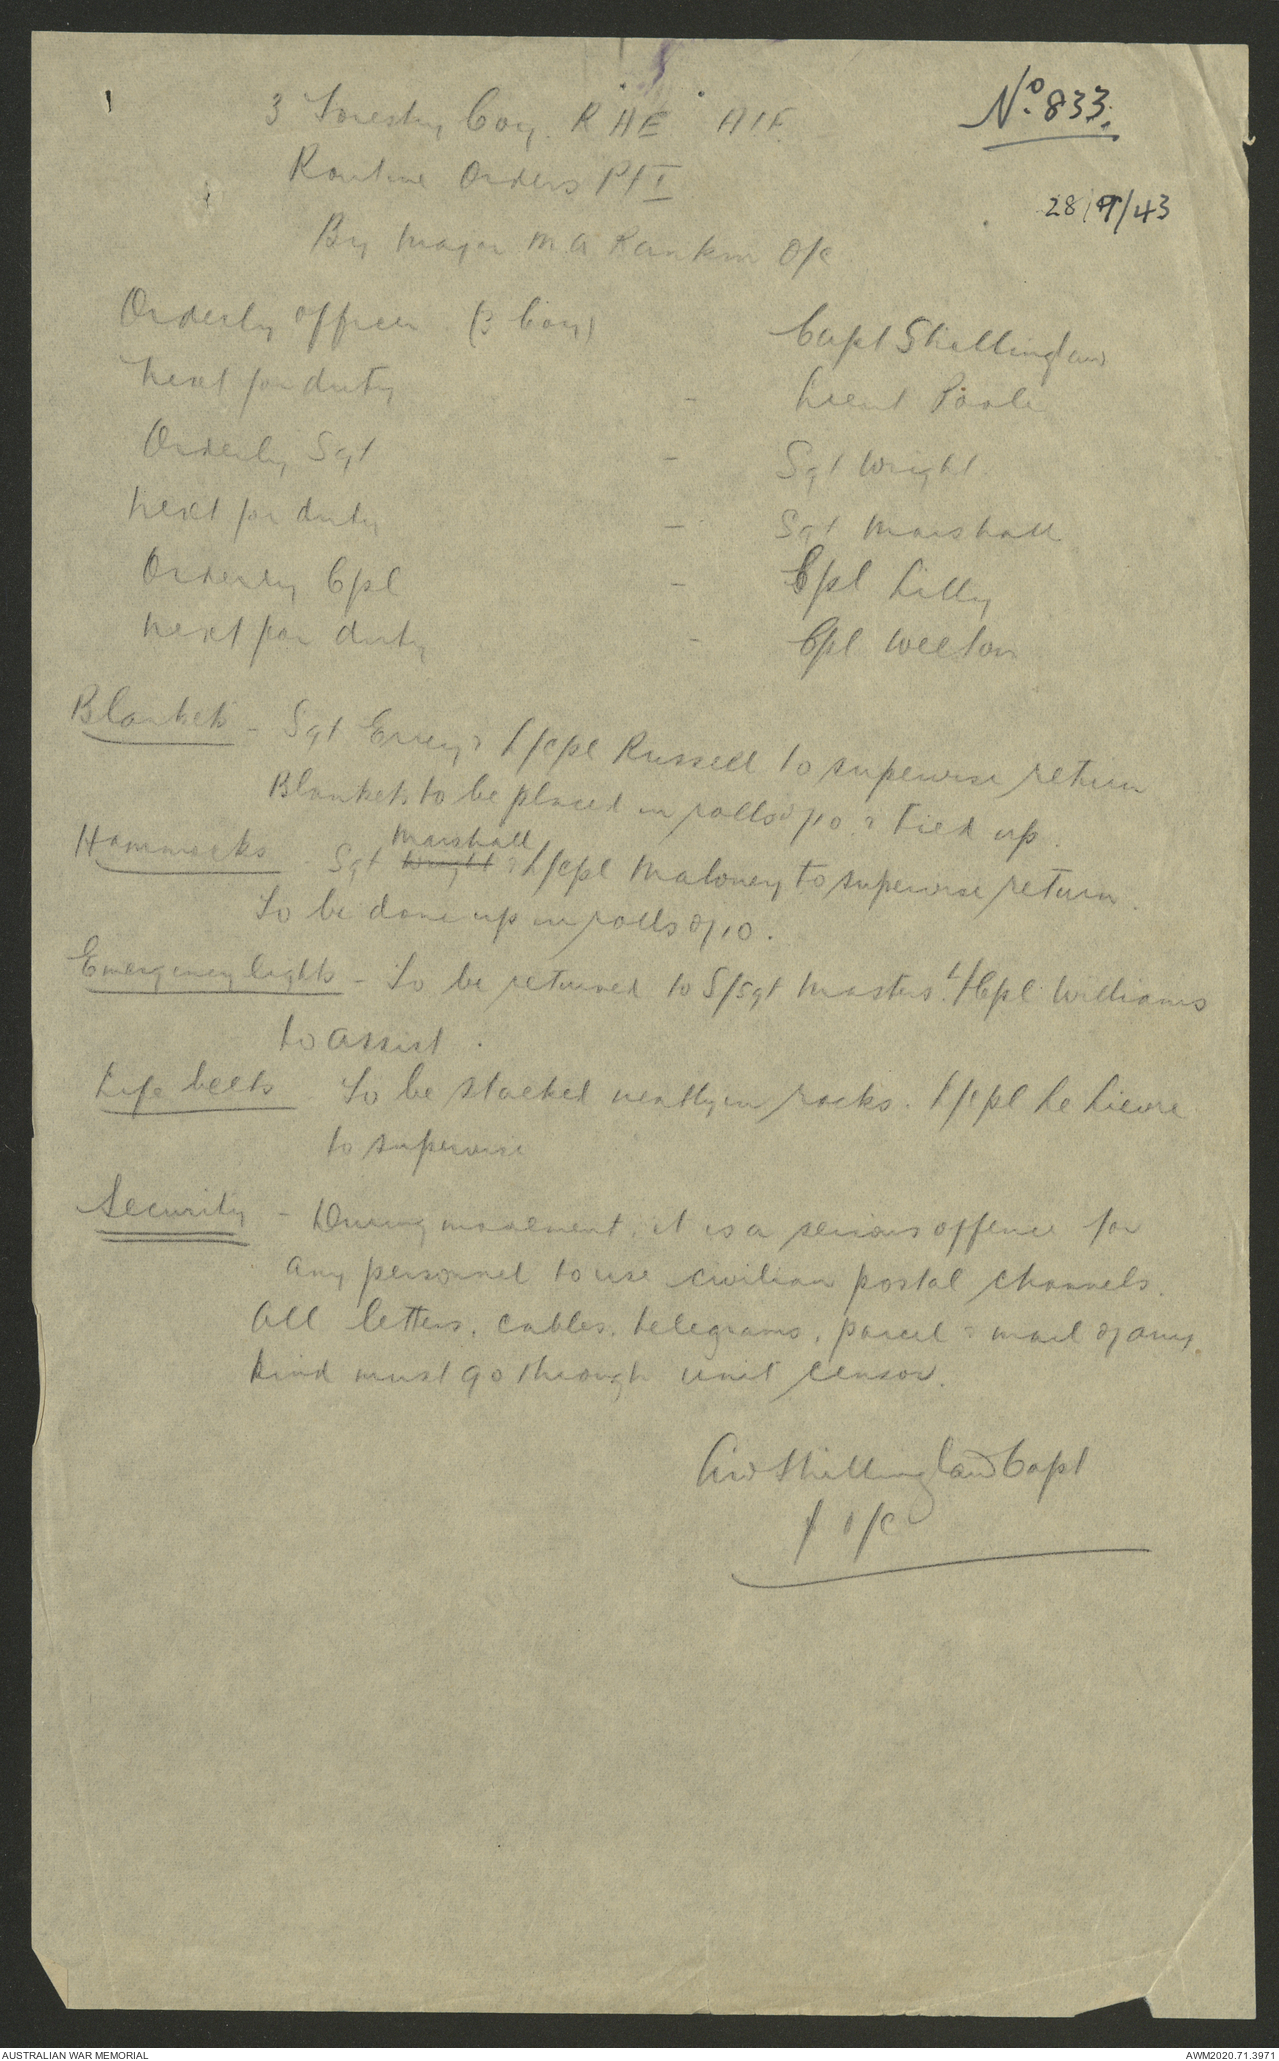 No. 833.
3 Forestry Coy. R "AE" AIF
Routine Orders Pt I
28/9/43
By Major M A Rankin O/c
Orderly officer (3 Coy) Capt Shillinglaw
Next for duty - Lieut Poole
Orderly Sgt - Sgt Wright.
Next for duty - Sgt Marshall
Orderly Cpl - Cpl Lilly
Next for duty - Cpl Weeton
Blankets - Sgt Errey & L/cpl Russell to supervise return
Blankets to be placed in rolls of 10 & tied up.
Hammocks. Sgt Wright Marshall & L/cpl Maloney to supervise return.
To be done up in rolls of 10.
Emergency lights - To be returned to S/Sgt Masters. L/Cpl Williams
to assist.
Life belts. To be stacked neatly in racks. L/cpl Le Lievre
to supervise
Security - During movement, it is a serious offence for
any personnel to use civilian postal channels.
All letters, cables, telegrams, parcel & mail of any
kind must go through unit censor.
Shillinglaw Capt
f o/c
AUSTRALIAN WAR MEMORIAL
AWM2020.71.3971